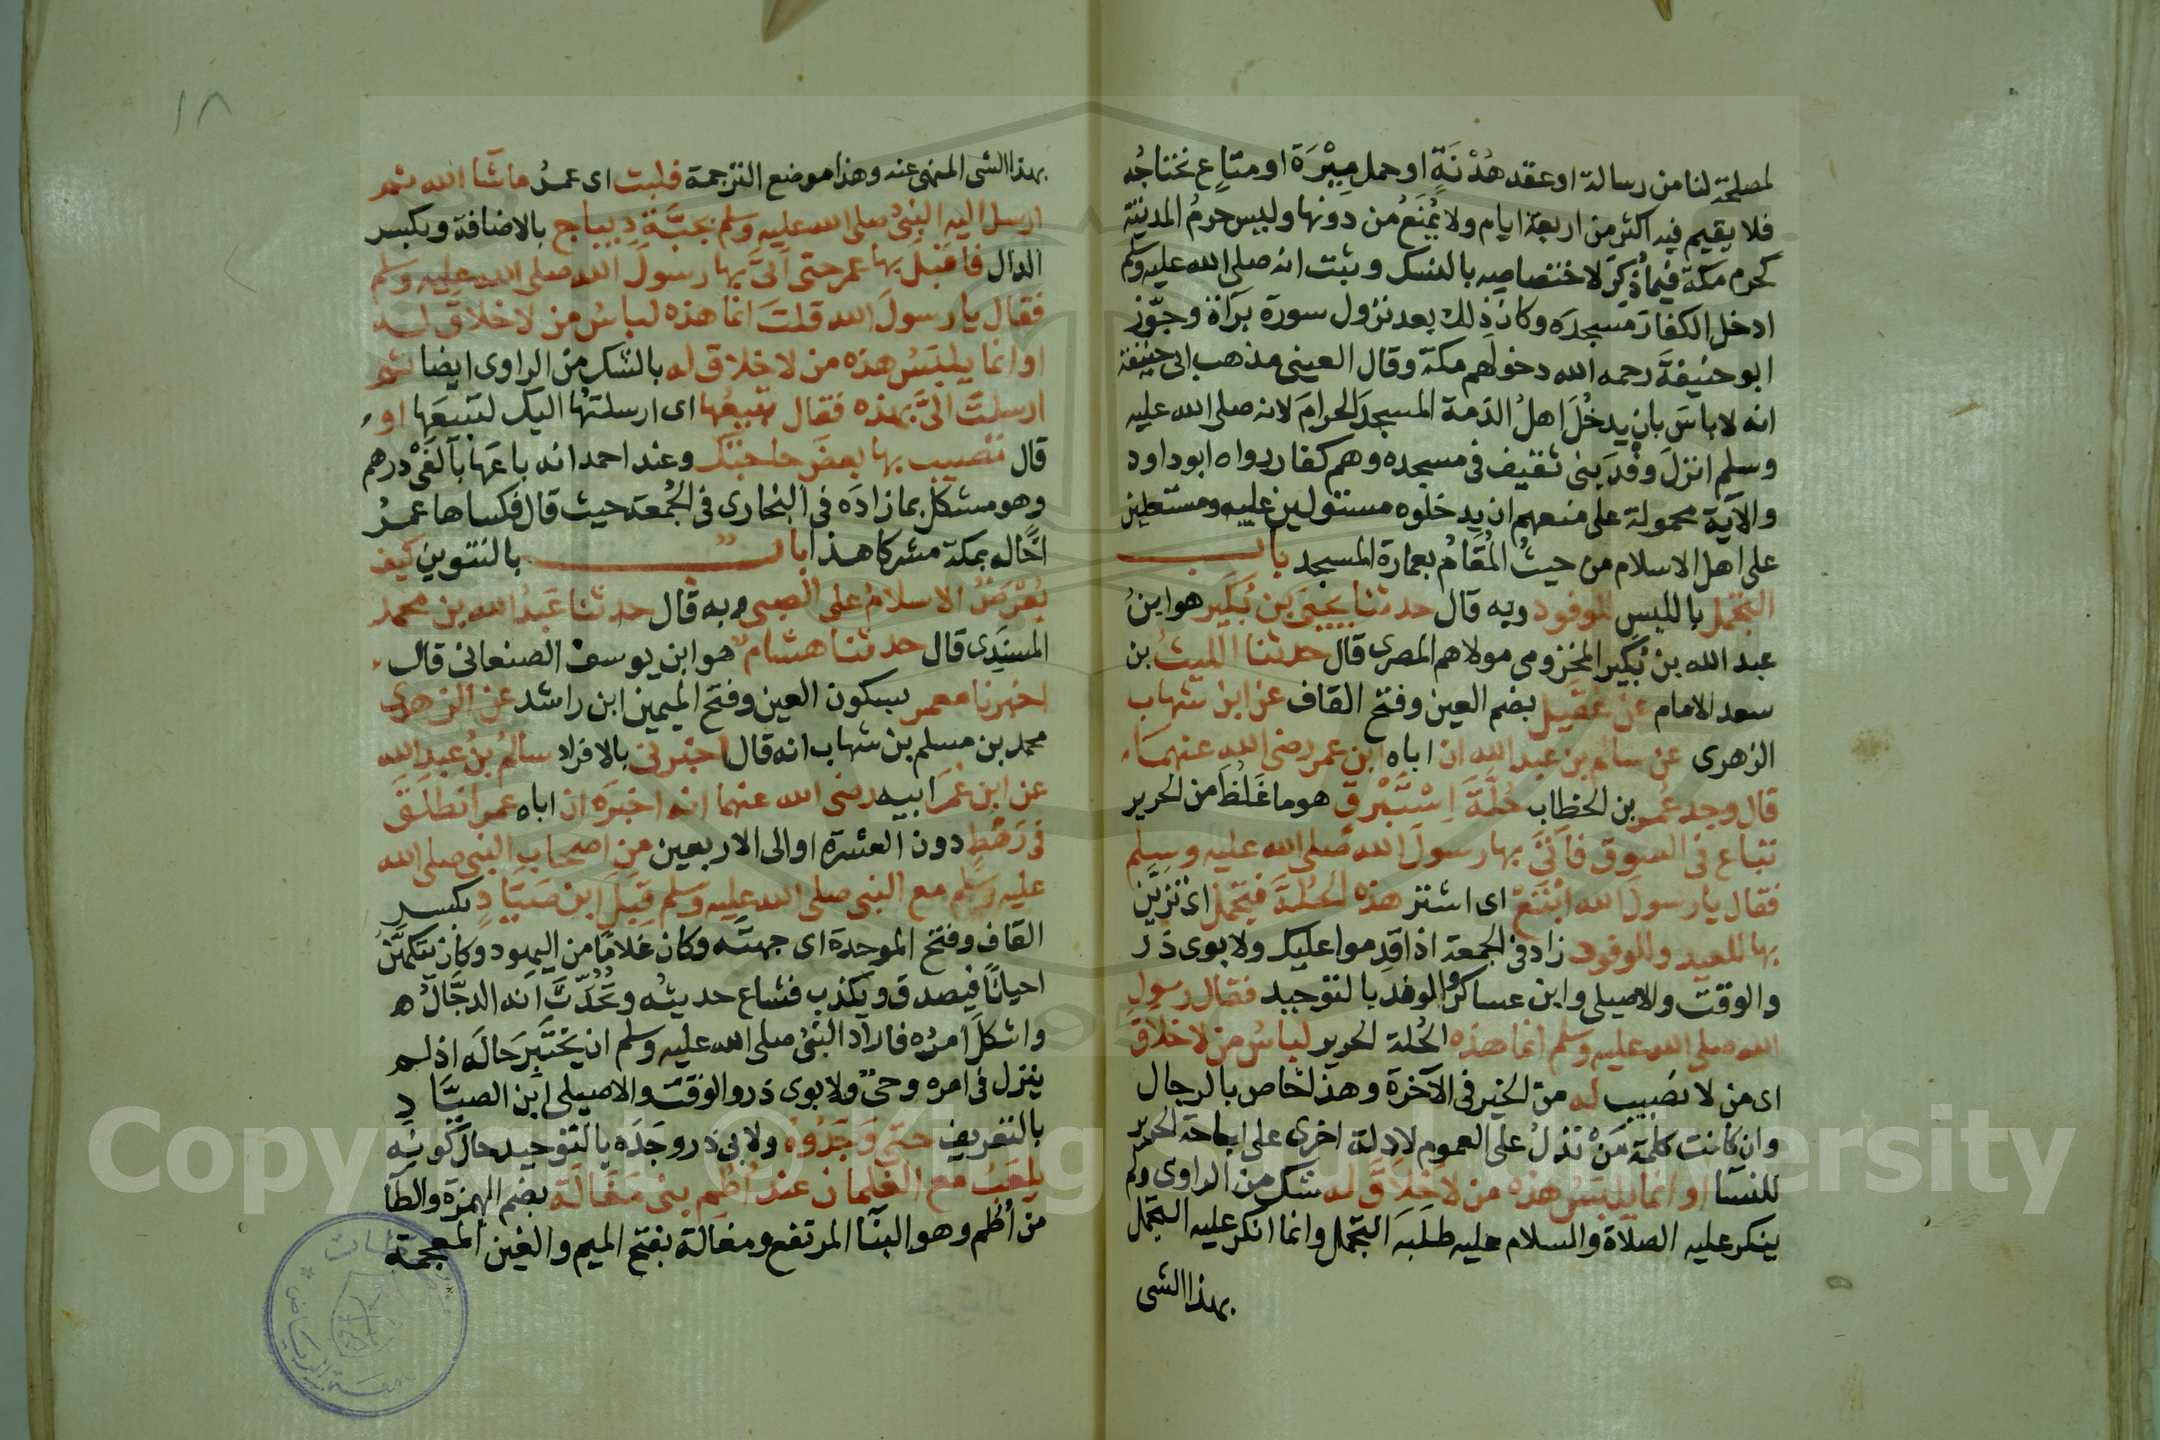 لمصلحة لنا من رسالة او عقد هُدْنَةٍ او حمل مِيْرَة او متاع نحتاجُه
فلا يقيم فيه اكثر من اربعة ايام ولا يُمنَعُ من دونها وليس حرمُ المدينة
كحرم مكة فيما ذُكِرَ لاختصاصه بالنسك وثبت انه صلى الله عليه وسلم
ادخل الكفار مسجدَه وكان ذلك بعد نزول سورة براة وجوّز
ابو حنيفةَ رحمه الله دخولَهم مكة وقال العينى مذهب ابى حنيفة
انه لا باسَ بان يدخُلَ اهلُ الذمة المسجدَ الحرامَ لانه صلى الله عليه
وسلم انزلَ وفدَ بنى ثقيف فى مسجده وهم كفار رواه ابو داود
والآية محمولة على منعهم ان يدخلوه مستولين عليه ومستعلين
على اهل الاسلام من حيثُ المُقَامُ بعمارة المسجد باب
التجمل باللبس للوفود وبه قال حدثنا يحيَى بن بُكَير هو ابنُ
عبد الله بن بُكَير المخزومى مولاهم المصرى قال حدثنا الليثُ بن
سعد الامام عن عُقَيل بضم العين وفتح القاف عن ابن شهاب
الزهرى عن سالم بن عبد الله ان اباه ابن عمر رضى الله عنهما
قال وجد عُمر بن الخطاب حُلَّةَ اِسْتَبْرَق هو ما غَلُظَ من الحرير
تباع فى السوق فاَتَى بها رسولَ الله صلى الله عليه وسلم
فقال يا رسولَ الله ابْتَعْ اى اشتر هذه الحُلةَ فتجمل اى تزيّن
بها للعيد وللوفود زاد فى الجمعة اذا قدِموا عليك ولابوى ذَر
والوقت والاصيلى وابن عساكر وللوفد بالتوحيد فقال رسول
الله صلى الله عليه وسلم انما هذه الحُلة الحرير لباسُ من لا خلاق
اى من لا نصيب له من الخير فى الآخرة وهذا خاص بالرجال
وان كانت كلمة مَنْ تدلُ على العموم لادلة اخرى على اباحة الحرير
للنسا او انما يلبَسُ هذه من لا خلاق له شك من الراوى ولم
ينكر عليه الصلاة والسلام عليه طلَبَه التجمل وانما انكر عليه التجمل
بهذا الشى
١٨
بهذا الشى المنهى عنه وهذا موضع الترجمة فلبث اى عمرُ ما شا الله ثم
ارسل اليه النبىُ صلى الله عليه وسلم بجبَّة دِيباج بالاضافة وبكسر
الدال فاقبلَ بها عمر حتى اتى بها رسولَ الله صلى الله عليه وسلم
فقال يا رسولَ الله قلتَ انما هذه لباسُ من لا خلاق له
او انما يلبَسُ هذه من لا خلاق له بالشك من الراوى ايضا ثم
ارسلتَ الىَّ بهذه فقال تبيعُها اى ارسلتها اليك لتبيعَها او
قال تصيب بها بعضَ حاجتك وعند احمد انه باعَها بالفَىْ درهم
وهو مشكل بما زادَه فى البخارى فى الجُمعة حيث قال فكساها عمرُ
اخًا له بمكة مشركا هذا باب بالتنوين كيف
يُعْرَضُ الاسلامُ على الصبى وبه قال حدثنا عبدُ الله بن محمد
المسنَدى قال حدثنا هشام هو ابن يوسف الصنعانى قال
اخبرنا معمر بسكون العين وفتح الميمين ابن راشد عن الزهرى
محمد بن مسلم بن شهاب انه قال اخبرنى بالافراد سالمُ بنُ عبدِ الله
عن ابن عُمرَ ابيه رضى الله عنهما انه اخبَرَه ان اباه عمر انطلَقَ
فى رَهْطٍ دون العشرة او الى الاربعين من اصحاب النبى صلى الله
عليه وسلم مع النبى صلى الله عليه وسلم قِبَلَ ابن صَيَّادٍ بكسر
القاف وفتح الموحدة اى جهتَه وكان غلامًا من اليهود وكان يتكهَّنُ
احيانًا فيصدق ويكذب فشاع حديثه وتُحُدِّثَ انه الدجَّالُ ه
واشكلَ امرُه فاراد النبىُ صلى الله عليه وسلم ان يختَبِرَ حالَه اذ لم
ينزل فى امره وحىٌ ولابوى ذر والوقت والاصيلى ابن الصيَّادِ
بالتعريف حتى وَجَدُوهُ ولابى ذر وجَدَه بالتوحيد حالَ كونِه
يلعَبُ مع الغلمان عند اُطُم بنى مَغَالة بضم الهمزة والطا
من اُطُم وهو البنآ المرتفع ومغالة بفتح الميم والغين المعجمة
Copyright © King Saud University